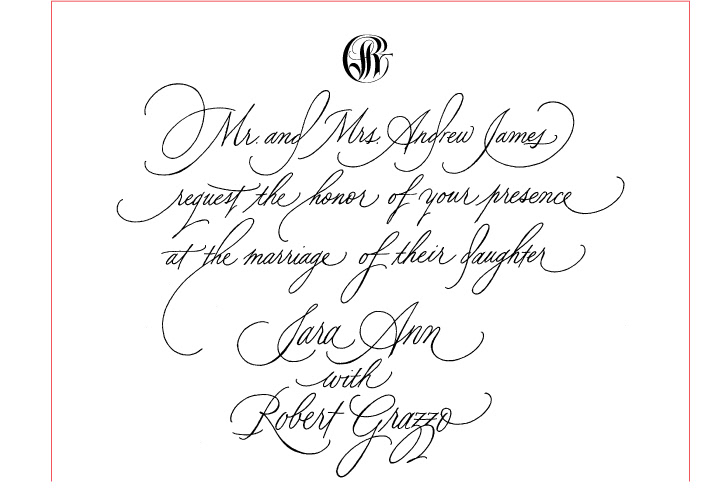 Mr. and Mrs. Andrew James
request the honor of your presence
at the marriage of their daughter
Sara Ann
with
Robert Grazzo